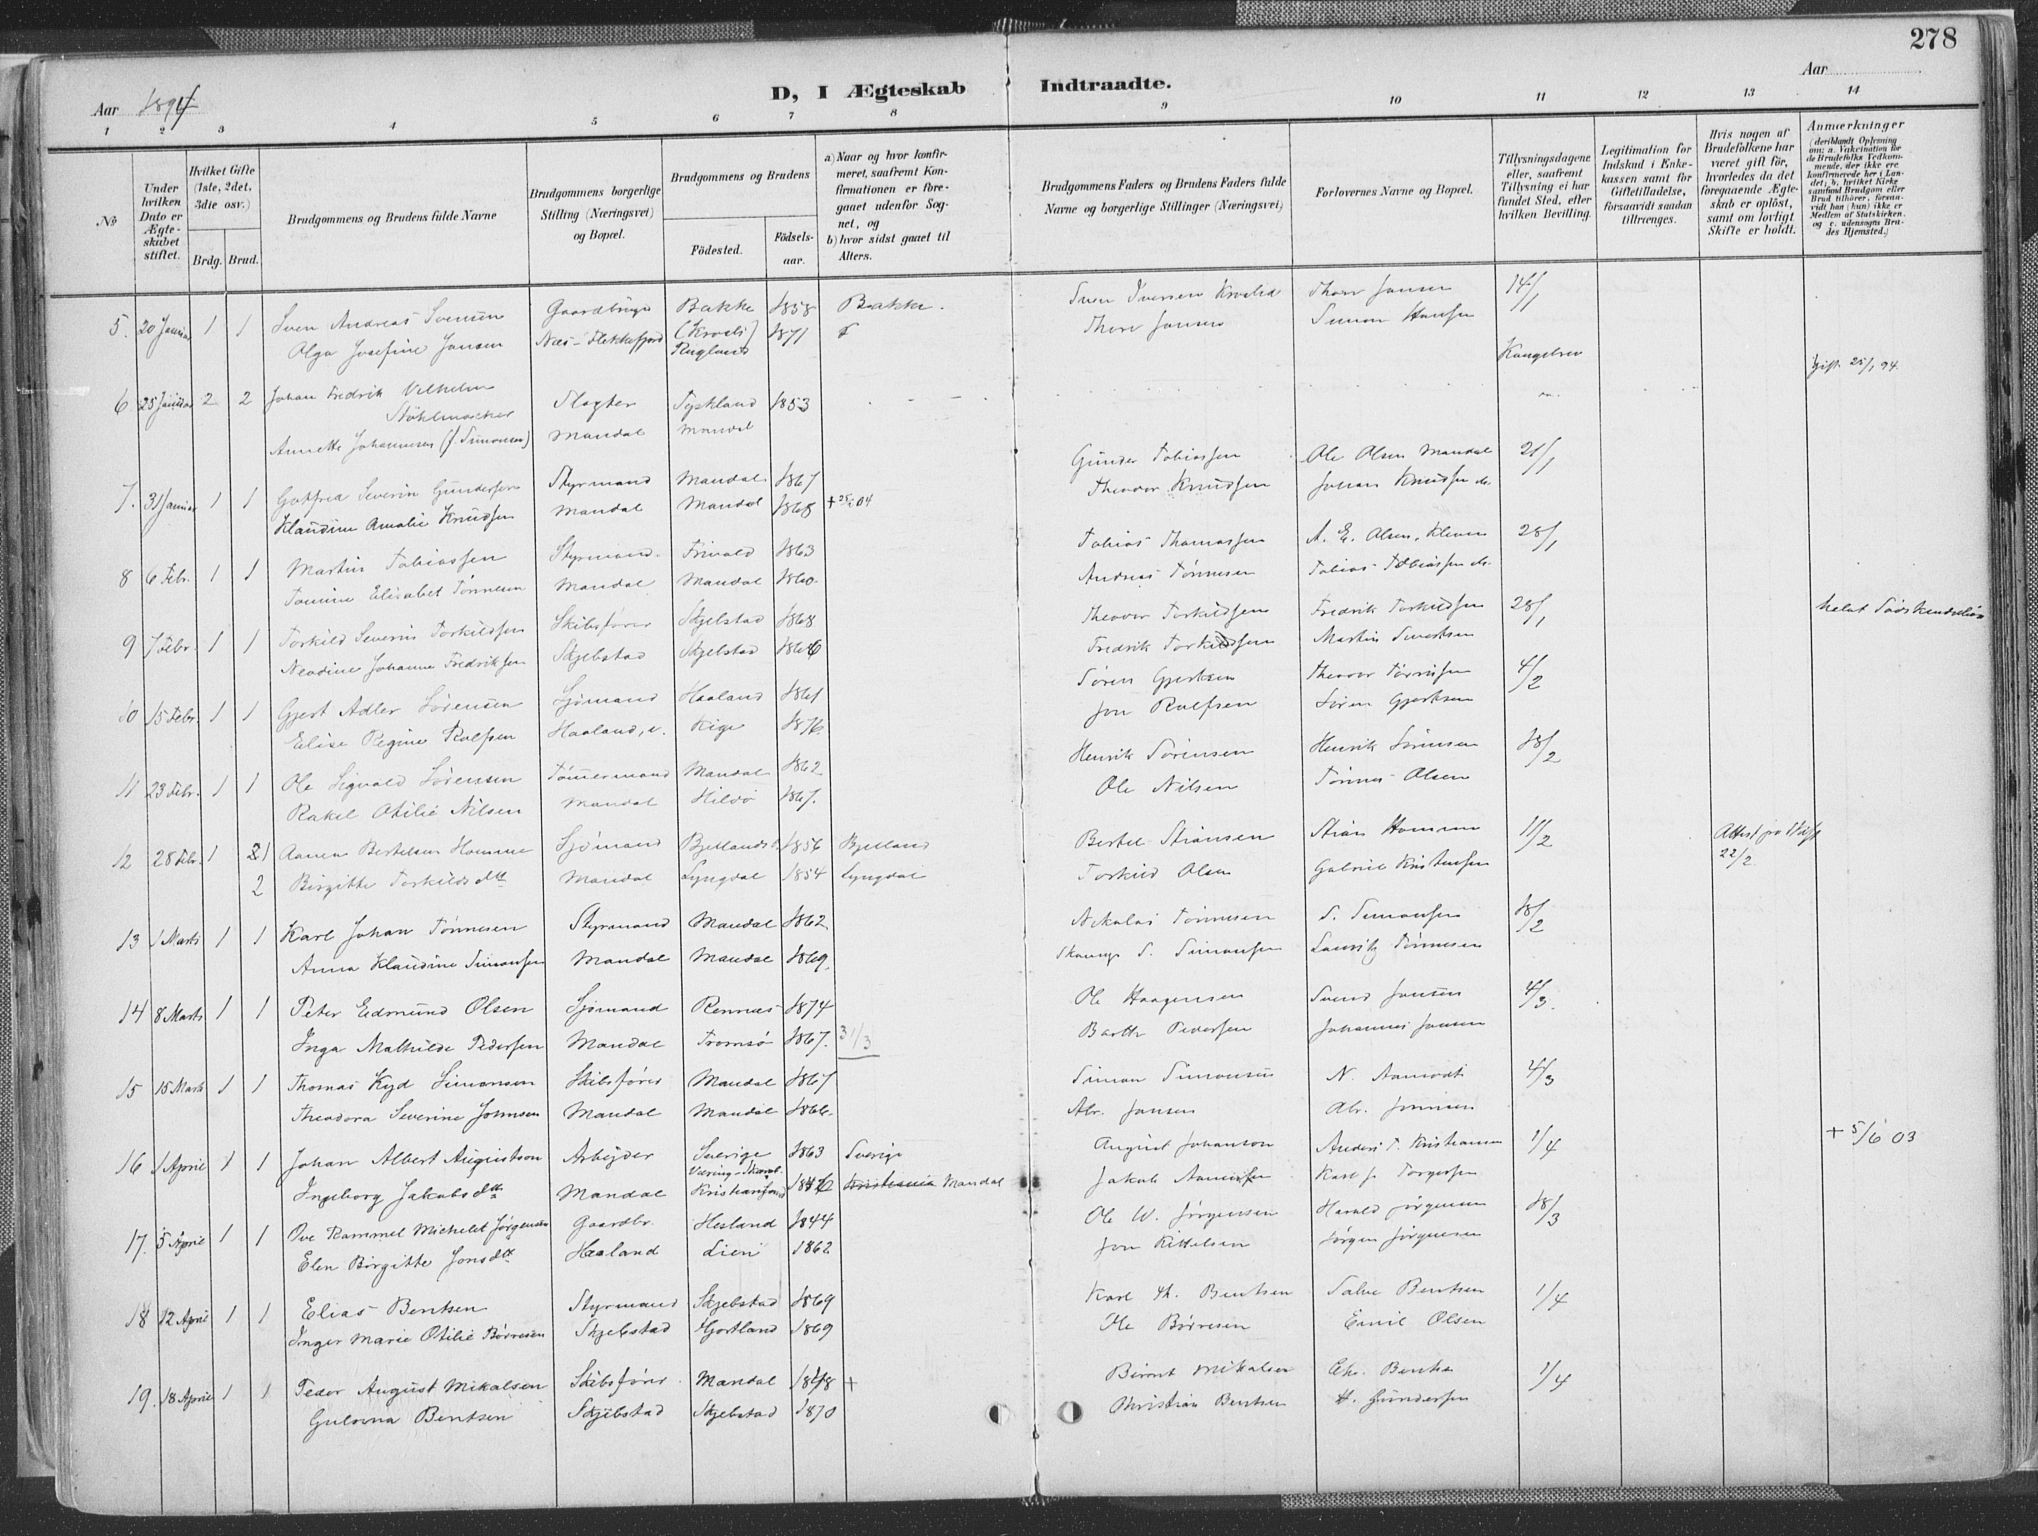 278
Aar 1894
D, I Ægteskab Indtraadte.
Aar
1 2 3 4 5 6 7 8 9 10 11 12 13 14
No
Under hvilken Dato er Ægteskabet stiftet.
Hvilket Gifte (1ste, 2det, 3die osv.)
Brdg. Brud.
Brudgommens og Brudens fulde Navne
Brudgommens borgerlige Stilling (Næringsvei) og Bopæl.
Brudgommens og Brudens
Födested. Födselsaar.
a) Naar og hvor konfirmeret, saafremt Konfirmationen er foregaaet udenfor Sognet, og
b) hvor sidst gaaet til Alters.
Brudgommens Faders og Brudens Faders fulde Navne og borgerlige Stillinger (Næringsvei)
Forlovernes Navne og Bopæl.
Tillysningsdagene eller, saafremt Tillysning ei har fundet Sted, efter hvilken Bevilling.
Legitimation for Indskud i Enkekassen samt for Giftetilladelse, forsaavidt saadan tiltrænges.
Hvis nogen af Brudefolkene har været gift för, hvorledes da det foregaaende Ægteskab er oplöst, samt om lovligt Skifte er holdt.
Anmærkninger (deriblandt Oplysning om: a. Vakcination for de Brudefolks Vedkommende, der ikke ere konfirmerede her i Landet; b. hvilket Kirkesamfund Brudgom eller Brud tilhörer, forsaavidt han (hun) ikke er Medlem af Statskirken, og c. udensogns Brudes Hjemsted.)
5. 20 Januar 1 1 Sven Andreas Svensen Gaardbruger Bakke 1858 Bakke. Sven Iversen Thore Jansen 14/1
Olga Josefine Jansen Næs-Flekkefjord 1871 Thore Jansen Simon Hansen
Kongebrev
Gift 25/1 94
6 25 Januar 2 2 Johan Fredrik Vilhelm Slagter Tyskland 1853
Annette Johannesen (f. Simonsen) Mandal Mandal
7. 31 Januar 1 1 Gotfred Severin Gundersen Styrmand Mandal 1867 Gunder Tobiassen Ole Olsen Mandal 21/1
Klaudine Amalie Knudsen Mandal Mandal 1868 Theodor Knudsen Johan Knudsen ds.
8 6 Febr. 1 1 Martin Tobiassen Styrmand. 1863 Tobias Thomassen A. E. Olsen, Kleven 28/1
Tomine Elisabet Tönnesen Mandal Mandal 1860. Andreas Tönnesen Tobias Tobiassen ds.
9 7 Febr. 1 1 Torkild Severin Torkildsen Skibsförer Skjelstad 1868 Theodor Torkildsen Fredrik Torkildsen 28/1
Johanne Fredriksen Skjebstad Skjelstad 1866 Fredrik Torkildsen Martin
10 15 Febr. 1 1 Gjert Adler Sörensen Sjömand Haaland 1861 Sören Gjertsen Theodor 4/2
Elise Regine Rolfsen Haaland, Kige 1876 Jon Rolfsen Sören Gjertsen
11 23 Febr. 1 1 Ole Sigvald Sörensen Tömmermand Mandal 1862 Henrik Sörensen Henrik Sörensen 18/2
Rakel Otilie Nilsen Mandal Hildö 1867. Ole Nilsen Tönnes Olsen
12 28 Febr. 1 1 Aanen Bertelsen Homme Sjömand Bjelland 1856 Bjelland Bertel 11/2 Attest
2 Birgitte Torkildsdtt Mandal Lyngdal 1854 Lyngdal Torkild Olsen Gabriel Kristensen 22/2
13 1 Marts 1 1 Karl Johan Tönnesen Styrmand Mandal 1862 Nikolai Tönnesen S. Simonsen 18/2
Anna Klaudine Simonsen Mandal Mandal 1869. S. Simonsen Lauritz Tönnesen
14 8 Marts 1 1 Peter Edmund Olsen Sjömand Rennæs 1874 Ole Haagensen Svend Jansen 4/3.
Inga Mathilde Pedersen Mandal Tromsö 1867. 31/3 Barth Pedersen Johannes Jansen
15 15 Marts 1 1 Thomas Kyd Simonsen Skibsförer Mandal 1867 Simon Simonsen N. Aamodt 4/3
Theodora Severine Mandal Mandal 1866. Abr. Jansen Abr.
16 1 April 1 1 Johan Albert Augustson Arbeider Sverige 1863 Sverige August Johanson Anders T. Kristiansen 1/4 + 5/6 03
Ingeborg Jakobsdtt Mandal Kristiansand Kristiania Mandal Jakob Karl J. Torgersen
17. 5 April 1 1 Ove Rammel Michelet Jörgensen Gaardbr. Hesland 1844 Ole W. Jörgensen Harald Jörgensen 18/3
Elen Birgitte Jonsdtt Haaland Lien 1862 Jon Kittelsen Jörgen Jörgensen
18 12 April 1 1 Elias Bentsen Styrmand Skjebstad 1869 Karl Th. Bentsen Salve Bentsen 1/4
Inger Marie Otilie Börresen Skjebstad Hjortland 1869 Ole Börresen Emil Olsen
19. 18 April 1 1 Peder August Mikalsen Skibsförer Mandal + Mikalsen Chr. 1/4
Gulovna Bentsen Skjebstad Skjebstad 1870 Christian Bentsen H. Gundersen